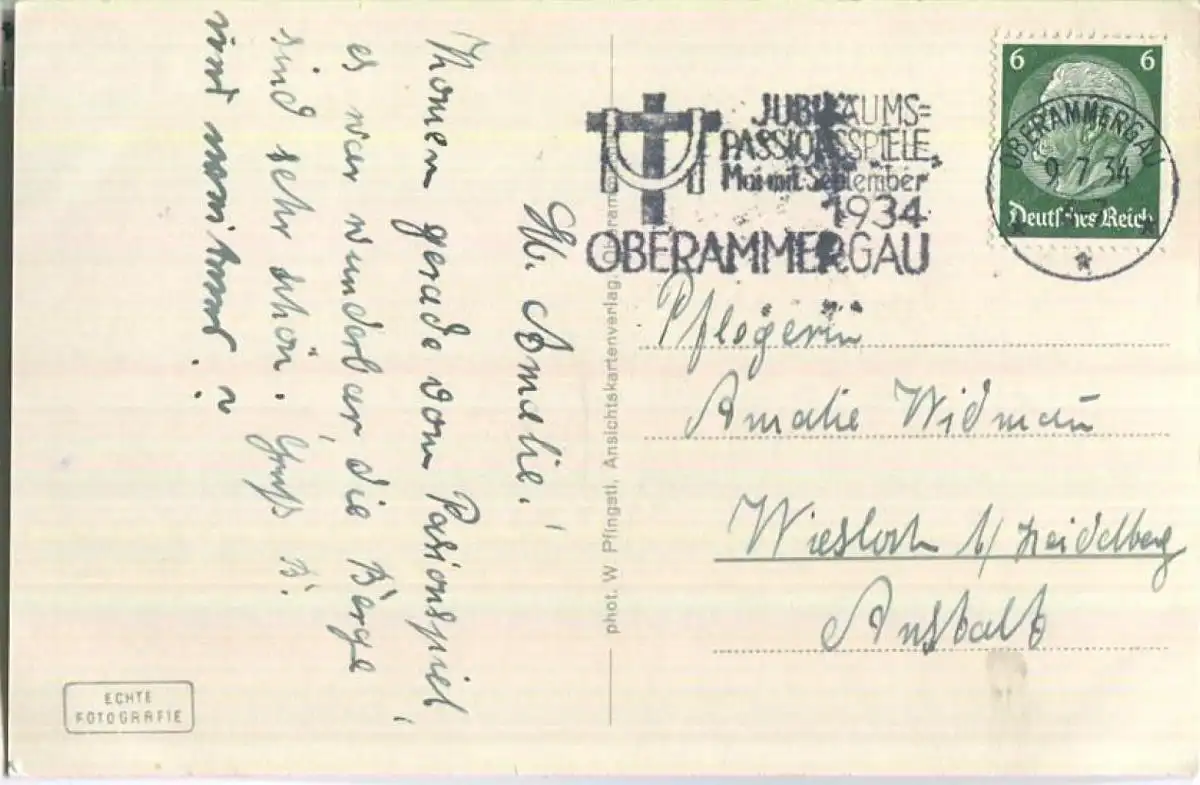 Lb. Amalie!
Komen gerade vom Pasionspiel,
es war wunderbar die Berge
sind sehr schön. Gruß B.
und
ECHTE
FOTOGRAFIE
phot. W. Pfingstl, Ansichtskartenverlag, Oberam
JUBILÄUMS=
PASSIONSSPIELE
Mai mit September
1934
OBERAMMERGAU
6 6
Deutsches Reich
OBERAMMERGAU
9.7.34
Pflegerin
Amalie Widmaũ
Wiesloch b/Heidelberg
Anstalt